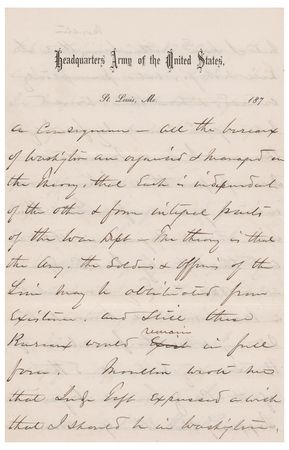 Headquarters Army of the United States,
St. Louis, Mo. 187
a consequence - all the bureaux
of Washington are organized & managed on
the Theory, that Each is independent
of the other & form integral parts
of the War Dept - The theory is that
the Army, the Soldiers & Officers of the
Line may be obliterated from
Existence, and Still these
remain
Bureaux would Exist in full
force. Moulton wrote me
that Judge Taft expressed a wish
that I should be in Washington,